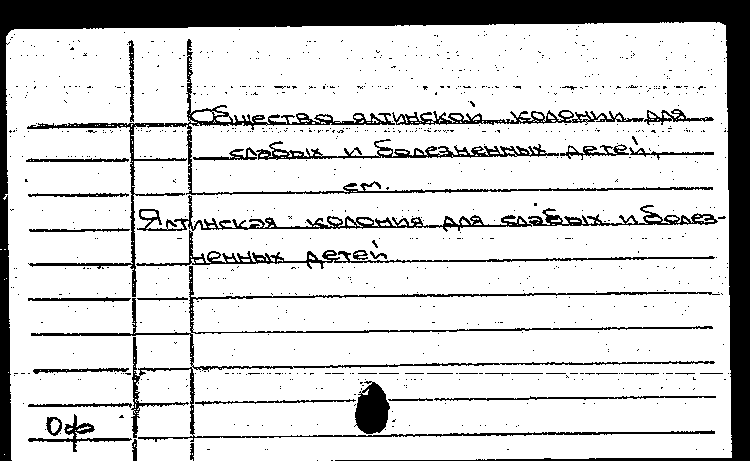 Общество ялтинской колонии для
слабых и болезненных детей,
см.
Ялтинская колония для слабых и болез-
ненных детей
Оф